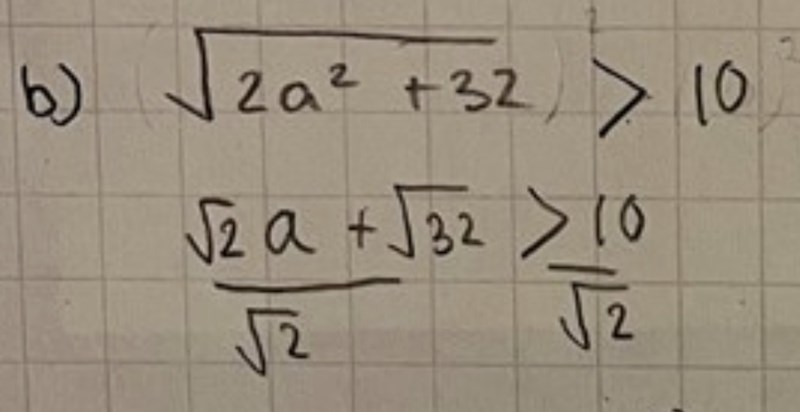 b) √(2a² + 32) > 10
√2 a + √32 > 10
√2 √2